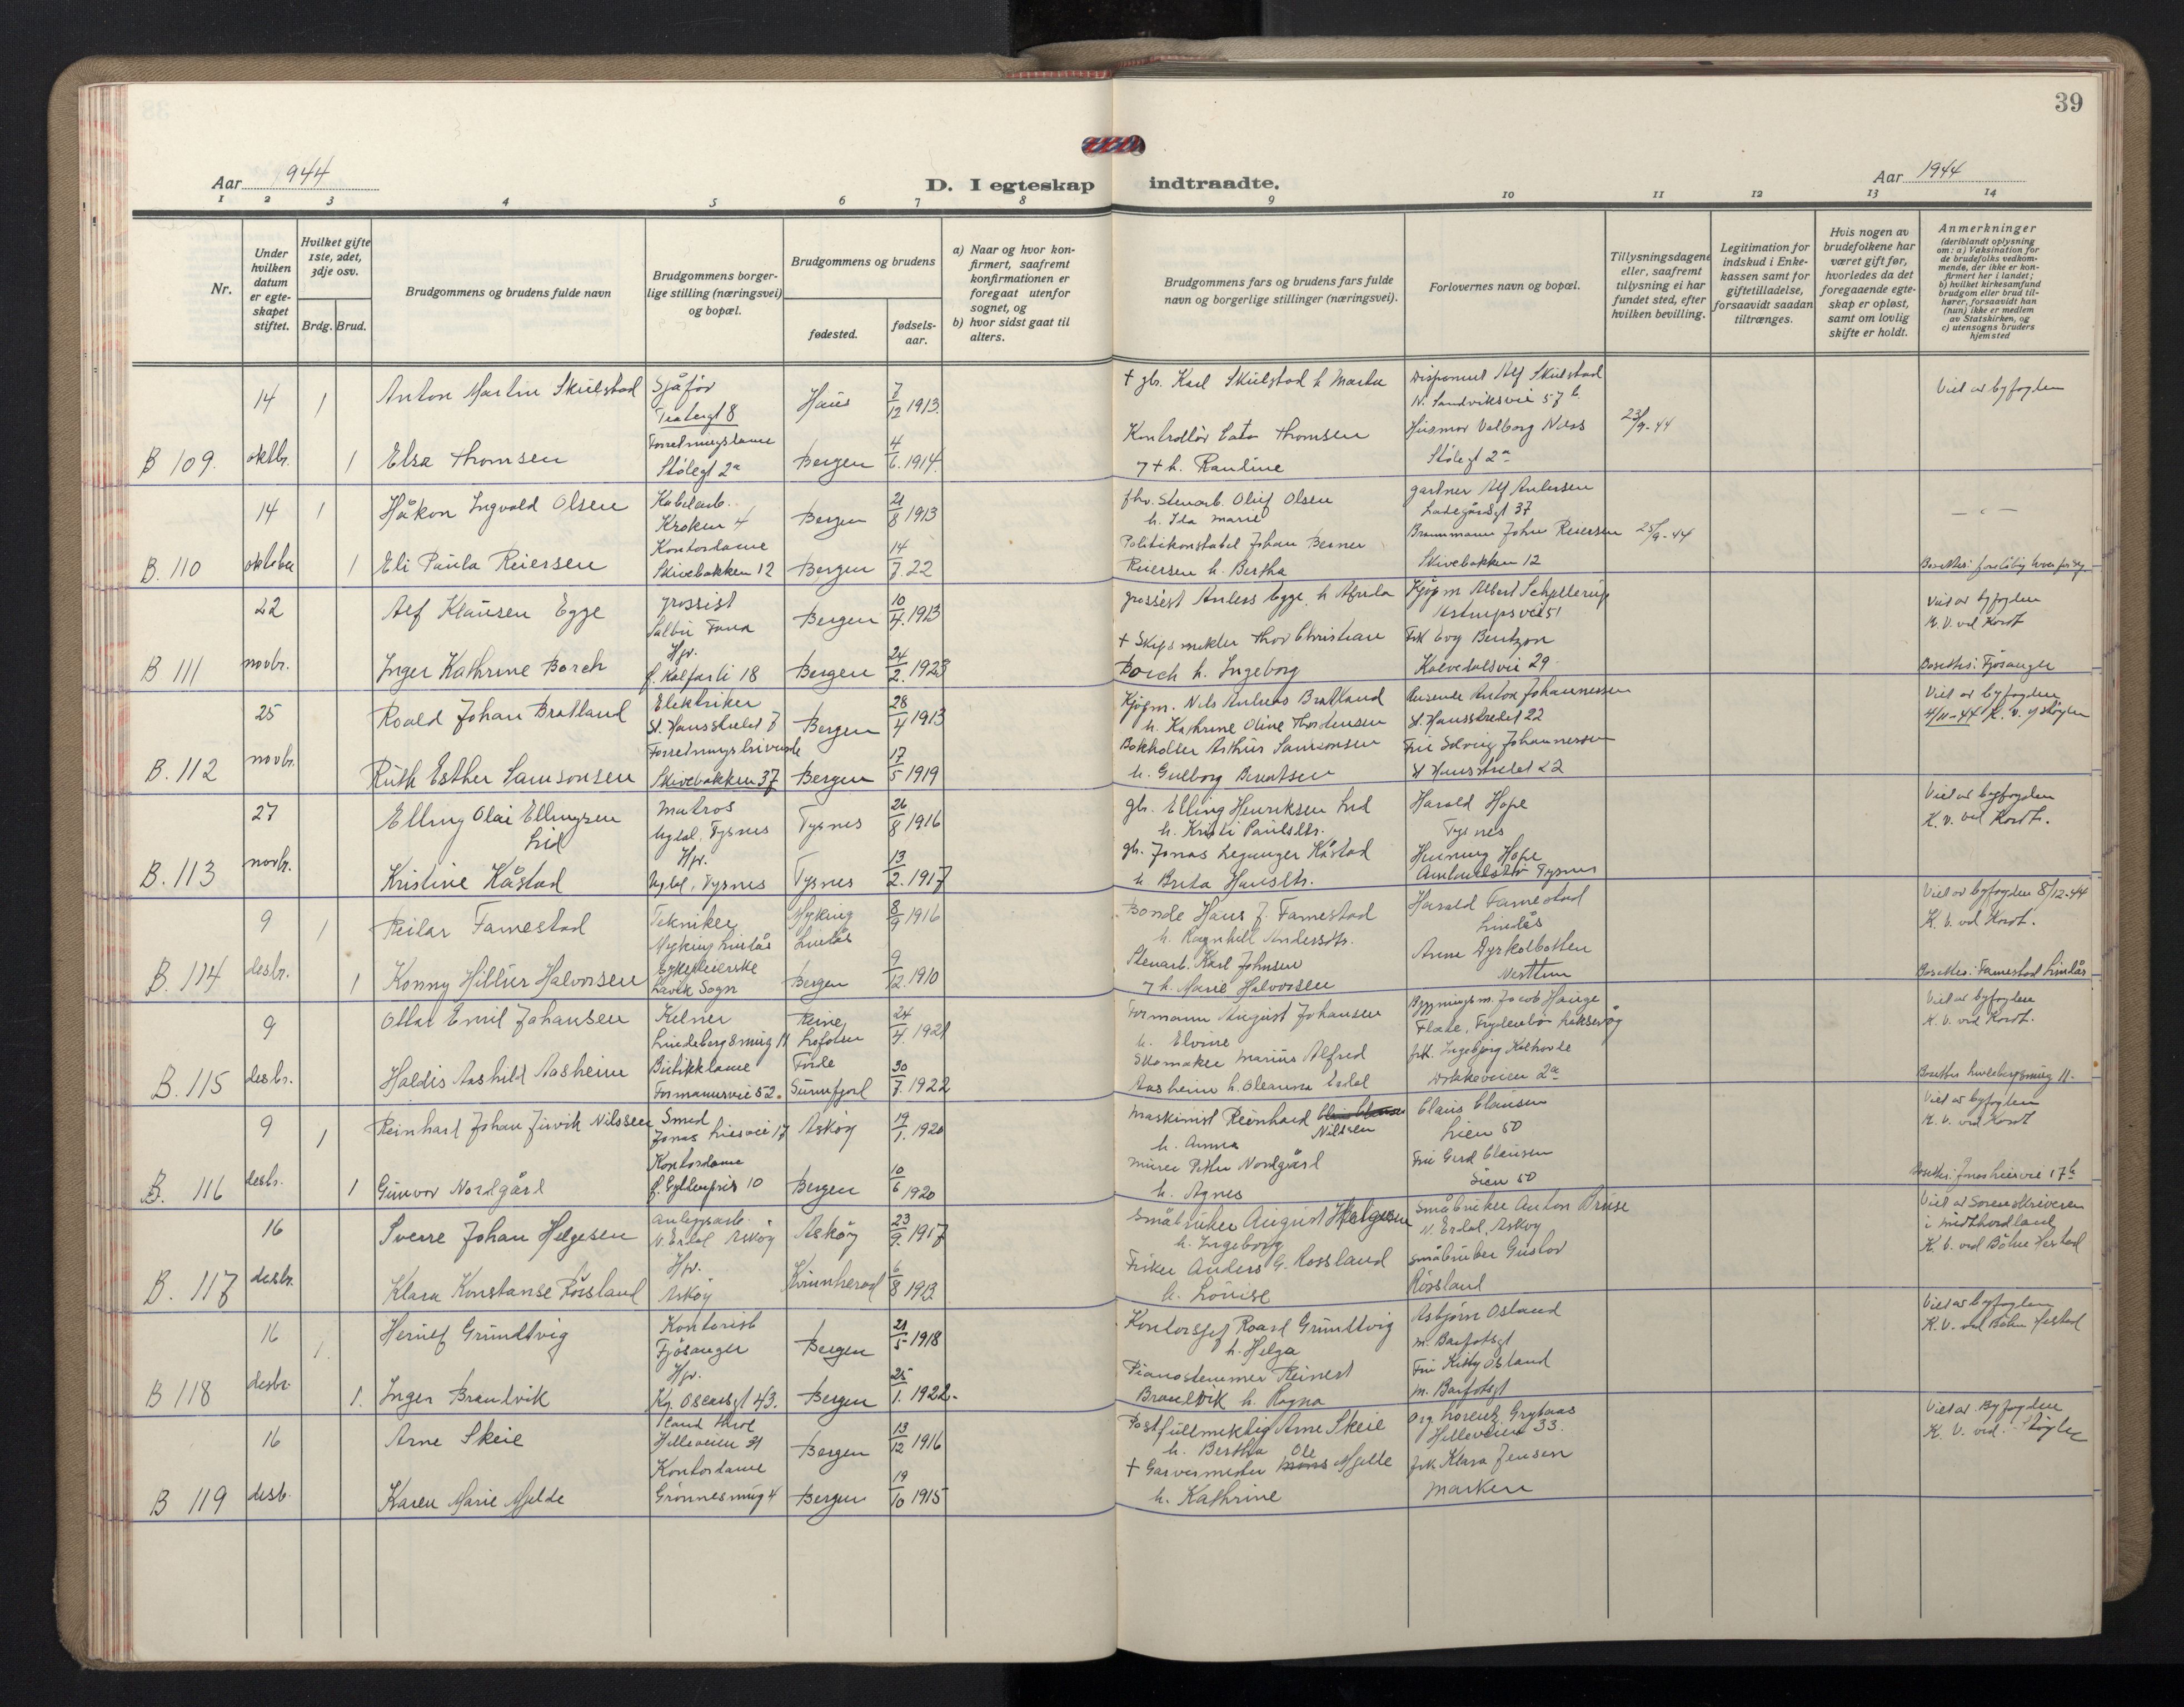 39
Aar 1944
D. I egteskap indtraadte.
Aar 1944
1 2 3 4 5 6 7 8 9 10 11 12 13 14
Nr.
Under hvilken datum er egteskapet stiftet.
Hvilket gifte 1ste, 2det, 3dje osv.
Brdg. Brud.
Brudgommens og brudens fulde navn
Brudgommens borgerlige stilling (næringsvei) og bopæl.
Brudgommens og brudens
fødested.
fødselsaar.
a) Naar og hvor konfirmert, saafremt konfirmationen er foregaat utenfor sognet, og
b) hvor sidst gaat til alters.
Brudgommens fars og brudens fars fulde navn og borgerlige stillinger (næringsvei).
Forlovernes navn og bopæl.
Tillysningsdagene eller, saafremt tillysning ei har fundet sted, efter hvilken bevilling.
Legitimation for indskud i Enkekassen samt for giftetilladelse, forsaavidt saadan tiltrænges.
Hvis nogen av brudefolkene har været gift før, hvorledes da det foregaaende egteskap er opløst, samt om lovlig skifte er holdt.
Anmerkninger
(deriblandt oplysning om: a) Vaksination for de brudefolks vedkommende, der ikke er konfirmert her i landet; b) hvilket kirkesamfund brudgom eller brud tilhører, forsaavidt han (hun) ikke er medlem av Statskirken, og c) utensogns bruders hjemsted
B 109. 14 oktbr. 1 1
Anton Martin Skulstad Sjåfør Teatergt 8 Haus 7/12 1913.
Elsa Thomsen Forretningsdame Stølegt 2a Bergen 4/6. 1914.
+ gbr. Karl Skulstad h Marta
Kontrollør Cato Thomsen
7 + h. Pauline
Disponent Alf Skulstad
N. Sandviksvei 57 b.
Husmor Valborg Næss
Stølegt 2a
23/9-44
Viet av byfogden
B. 110 14 oktober 1 1
Håkon Ingvald Olsen Kabelarb. Kroken 4 Bergen 21/8 1913
Eli Paula Reiersen Kontordame Skivebakken 12 Bergen 14/7. 22
fhv. Stenarb. Oluf Olsen
h. Ida Marie
Politikonstabel Johan Berner
Reiersen h. Bertha
gartner Alf Andersen
Ladegårdsgt 37
Brannmann John Reiersen
Skivebakken 12
25/9-44
— " —
Bosettes: foreløbig hver for seg
B 111 22 novbr.
Alf Klausen Egge grossist Fana Bergen 10/4. 1913
Inger Kathrine Borch Hjv. f. Kalfarli 18 Bergen 24/2. 1923
grossist Anders Egge, h Alfrida
+ Skipsmekler Thor Christian
Borch h. Ingeborg
Kjøpm Albert Schjelderup
Astrupsvei 51
Frk Evy Bentzon
Kalvedalsvei 29.
Viet av byfogden
K. V. ved Kordt
Bosettes: Fjøsanger
B. 112 25 novbr.
Roald Johan Bratland Elektriker St. Hansstredet 7 Bergen 28/4 1913
Ruth Esther Samsonsen Forretningsdrivende Skivebakken 37 Bergen 17/5 1919
Kjøpm. Nils Andreas Bratland
h. Kathrine Oline Thordensen
Bokholder Arthur Samsonsen
h. Gudborg Berentsen
Reisende Anton Johannessen
St. Hansstredet 22
Fru Solveig Johannessen
St Hansstredet 22
Viet av byfogden
4/11-44 K. v. v/ Støylen
B. 113 27 novbr.
Elling Olai Ellingsen Lid Matros Uggdal, Tysnes Tysnes 26/8 1916
Kristine Kåstad Hjv. Uggdal, Tysnes Tysnes 13/2. 1917
gbr. Elling Henriksen Lid
h. Kristi Paulsdtr.
gb. Jonas Leganger Kåstad
h Brita Hansdtr.
Harald Hope
Tysnes
Henning Hope
Tysnes
Viet av byfogden
K. v. ved Kordt.
B. 114 9 desbr. 1 1
Reilar Famestad Tekniker Myking Lindås Myking Lindås 8/9 1916
Konny Hildur Halvorsen Sykepleierske Lavik Sogn Bergen 9/12. 1910
Bonde Haus J. Famestad
h. Ragnhild Andersdtr.
Stenarb. Karl Johnsen
7 h. Marie Halvorsen
Harald Famestad
Lindås
Arne Dyrkolbotten
Nesttun
Viet av byfogden 8/12-44
K. V. ved Kordt.
Bosettes: Famestad Lindås
B. 115 9 desbr.
Ottar Emil Johansen Kelner Lindebergsmug 11 Reine Lofoten 24/4. 1921
Haldis Aashild Aasheim Butikkdame Formannsvei 52. Førde Sunnfjord 30/7. 1922
Formann August Johansen
h. Elvine
Skomaker Marius Alfred
Aasheim h. Oleanna Erdal
Bygningsm. Jacob Hauge
Flæte, Frydenbø Laksevåg
frk. Ingebjørg Kolhovde
Dokkeveien 2a
Viet av byfogden
K. V. ved Kordt.
Bosettes Lindebergsmug 11.
B. 116 9 desbr. 1 1
Reinhard Johan Jirvik Nilssen Smed Jonas Liesvei 17 Askøy 19/1. 1920
Gunvor Nordgård Kontordame f. Gyldenpris 10 Bergen 10/6 1920
Maskinist Reinhard Nilssen
h. Anna
Murer Petter Nordgård
h. Agnes
Claus Clausen
Lien 50
Fru Gerd Clausen
Lien 50
Viet av byfogden
K. V. ved Kordt
Bosettes: Jonas Liesvei 17 b
B. 117 16 desbr.
Sverre Johan Helgesen Anleggsarb. N. Erdal Askøy Askøy 23/9. 1917
Klara Konstanse Røssland Hjv. Askøy Kvinnherad 6/8 1913.
Småbruker August Helgesen
h. Ingeborg
Fisker Anders G. Rossland
h. Louise
Småbruker Anton Bruse
N. Erdal, Askøy
Småbruker Gustav
Røssland
Viet av Sorenskriveren
i Midthordland
K. V. ved Bøhn Hestad
B 118 16 desbr. 1. 1.
Herulf Grundtvig Kontorist Fjøsanger Bergen 21/5 1918
Inger Brandvik Hjv. Kg. Oscarsgt 43. Bergen 25/1. 1922.
Kontorsjef Roald Grundtvig
h. Helga
Pianostemmer Reinert
Brandvik h. Ragna
Asbjørn Osland
M. Barfotsgt
Fru Kitty Osland
M. Barfotsgt
Viet av byfogden
K. V. ved Bøhn Hestad
B 119 16 desb.
Arne Skeie Helleveien 31 Bergen 13/12 1916
Karen Marie Mjelde Kontordame Grønnesmug 4 Bergen 19/10 1915
Postfullmektig Arne Skeie
h. Bertha
+ Garvermester Ole Mjelde
h. Kathrine
Org. Lorentz Grytaas
Helleveien 33.
frk Klara Jensen
Marken
Viet av. Byfogden
K. V. ved Støylen